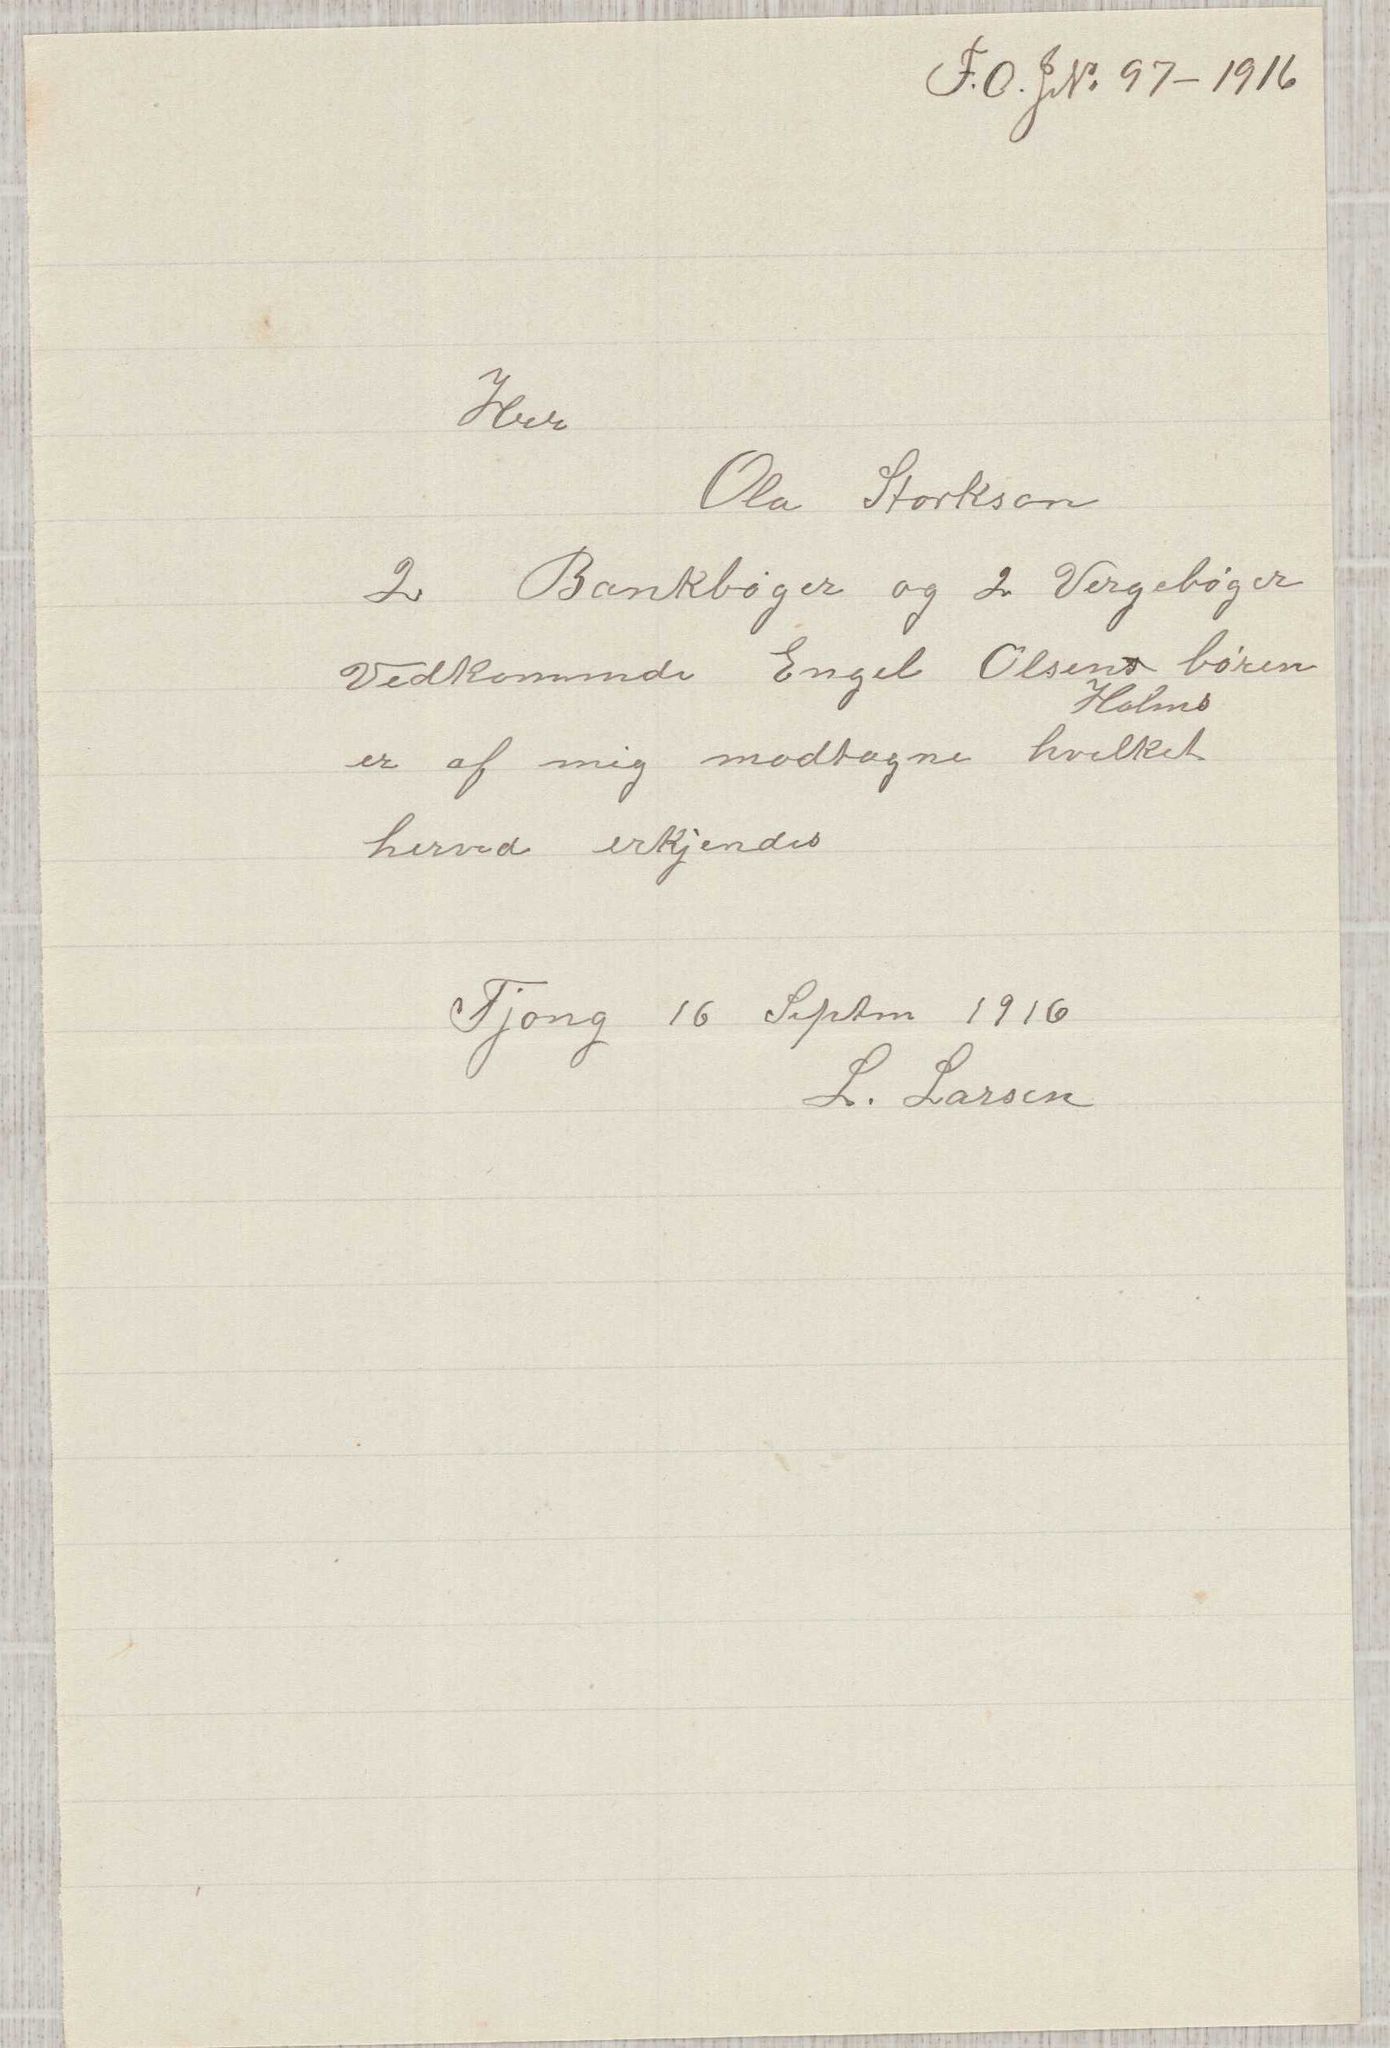 F.O. JNo. 97 – 1916
Herr
Ola Storkson
2 Bankbøger og 2 Vergebøger
Vedkommende Engel Olsens børen
Holmo
er af mig modtagne hvilket
herved erkjendes
Tjong 16 Septm 1916
L. Larsen